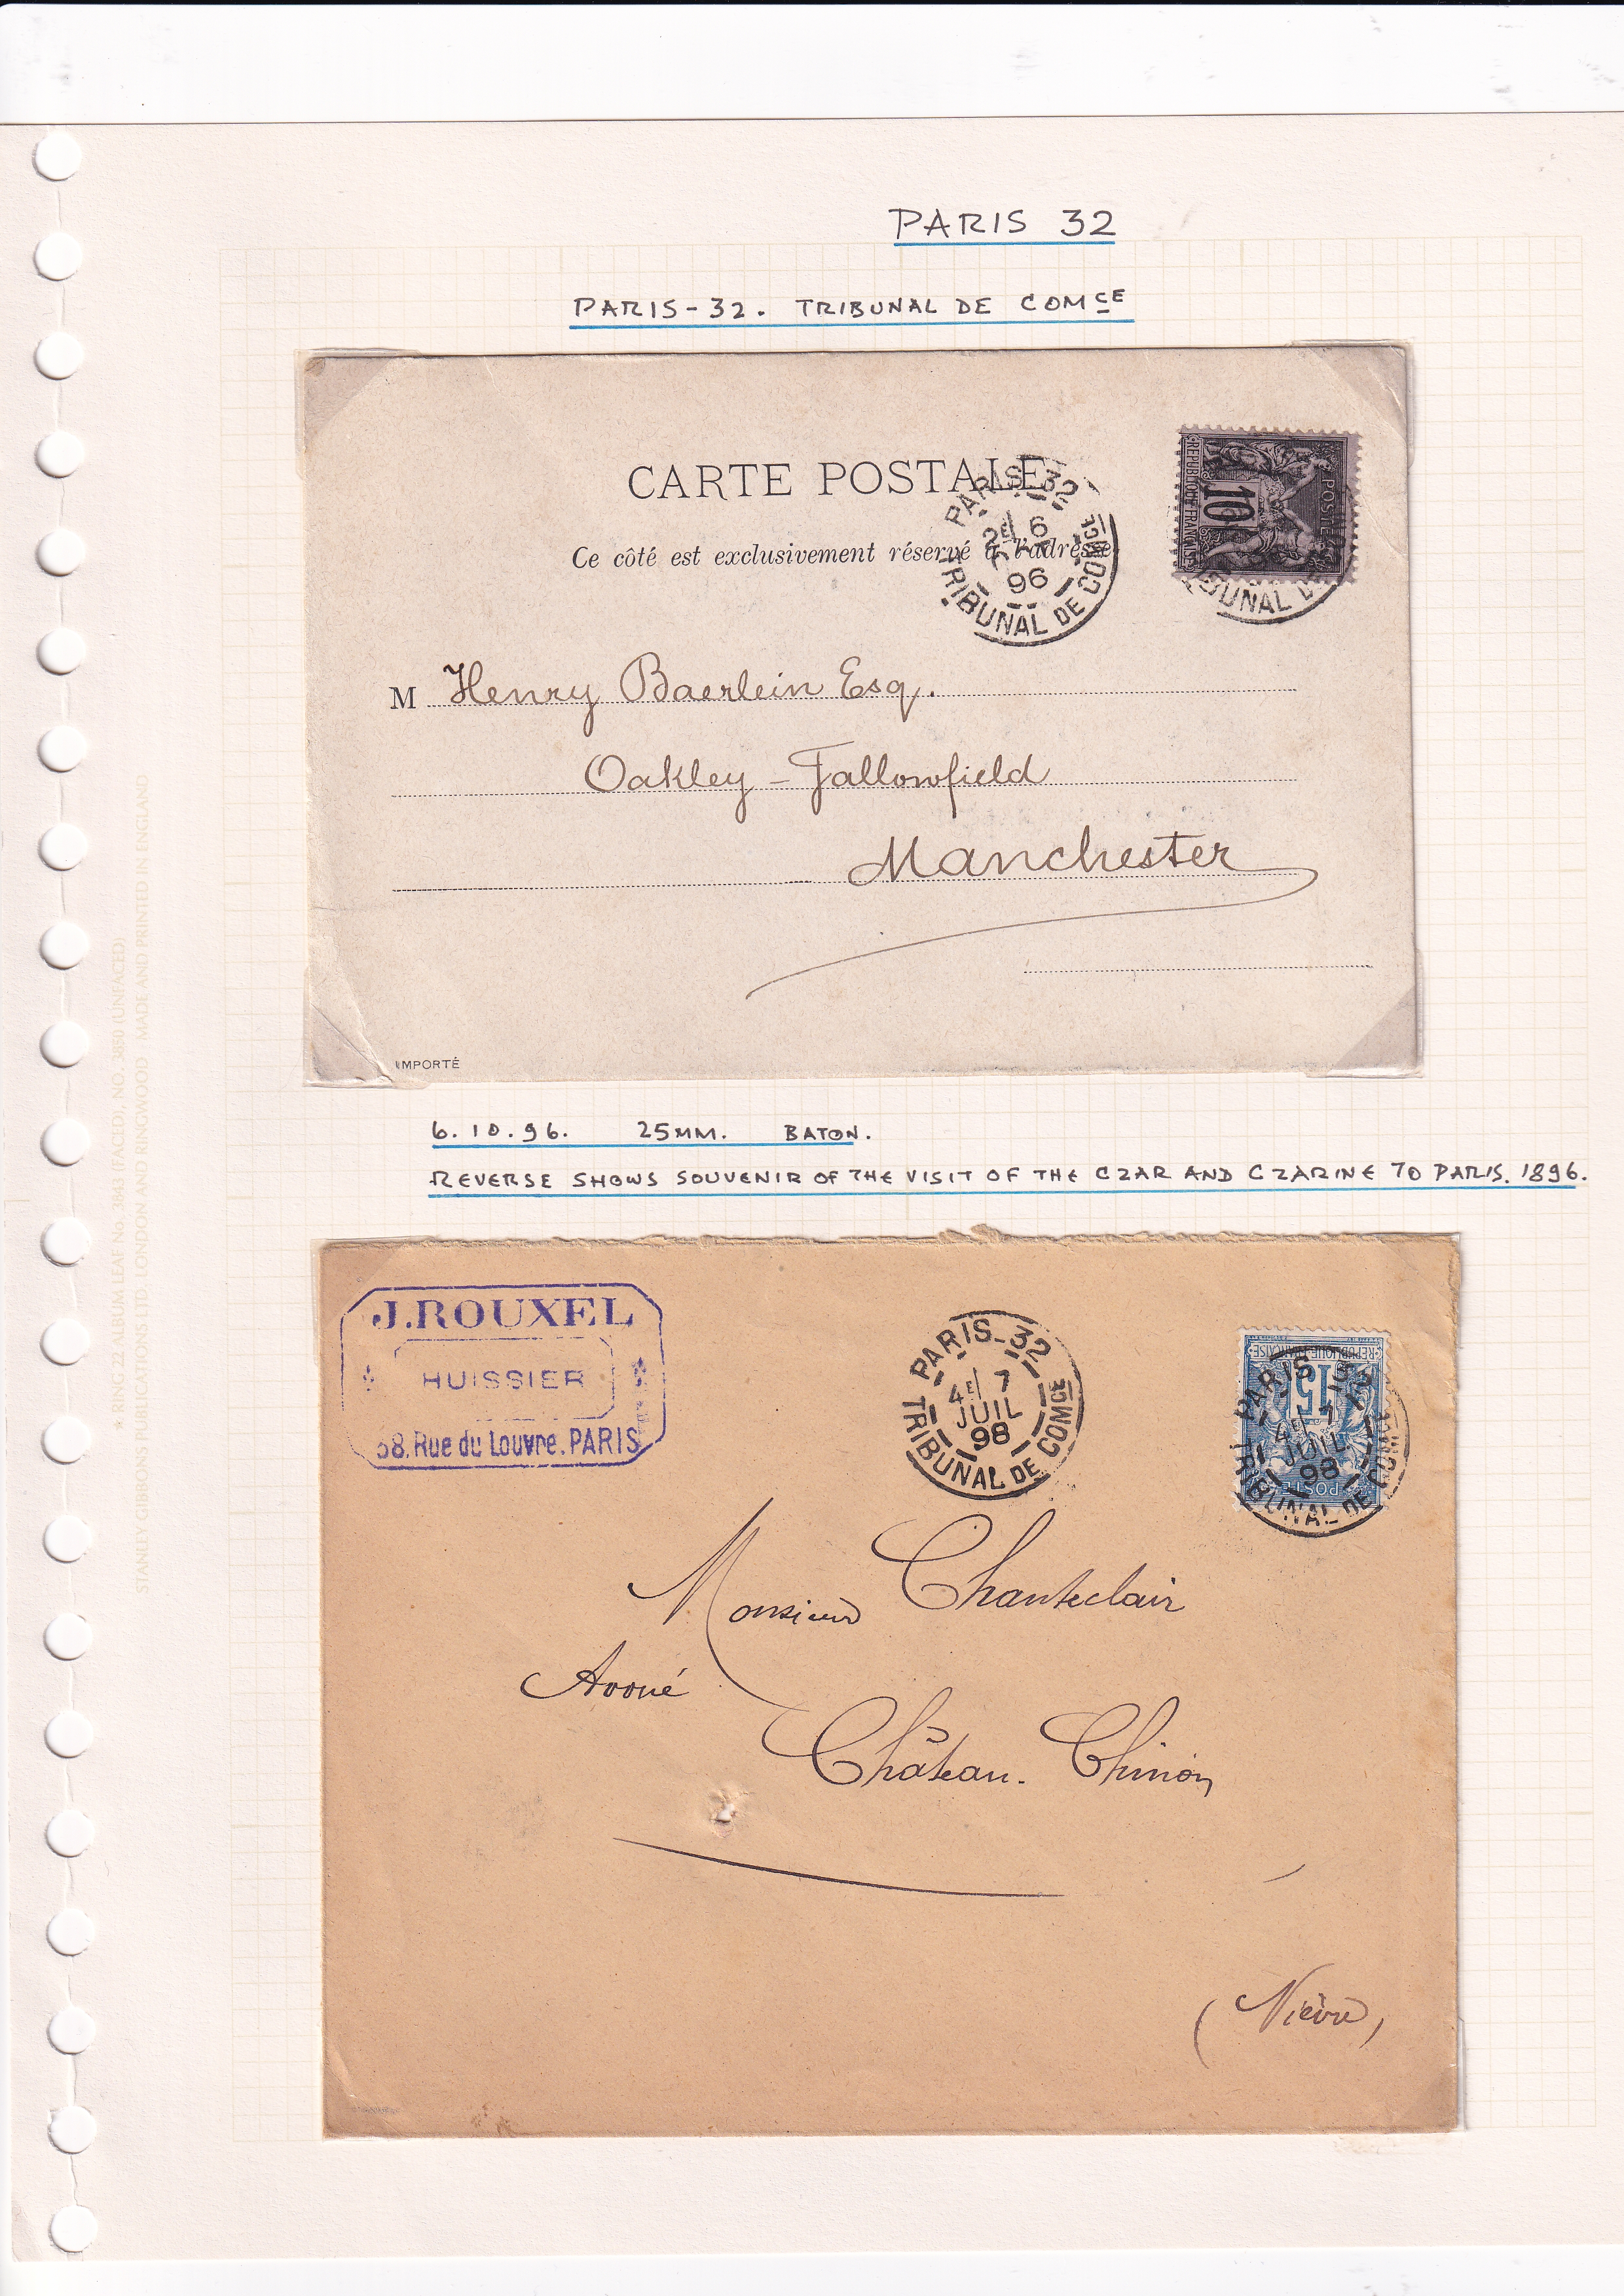 PARIS 32
PARIS-32. TRIBUNAL DE COMCE
CARTE POSTALE
Ce côté est exclusivement réservé à l'adresse
PARIS-32
2E 6
96
TRIBUNAL DE COMCE
REPUBLIQUE FRANÇAISE
10
POSTES
BUNAL D
M Henry Baerlein Esq.
Oakley - Fallowfield
Manchester
IMPORTÉ
6.10.96. 25MM. BATON.
REVERSE SHOWS SOUVENIR OF THE VISIT OF THE CZAR AND CZARINE TO PARIS. 1896.
J. ROUXEL
HUISSIER
38, Rue du Louvre. PARIS
PARIS-32
4E 7
JUIL
98
TRIBUNAL DE COMCE
REPUBLIQUE FRANÇAISE
15
POSTES
PARIS 32
4E 7
JUIL
98
TRIBUNAL DE COMCE
Monsieur Chanteclair
Avoué
Château-Chinon
(Nièvre)
★ RING 22 ALBUM LEAF No. 3843 (FACED), NO. 3850 (UNFACED)
STANLEY GIBBONS PUBLICATIONS LTD. LONDON AND RINGWOOD MADE AND PRINTED IN ENGLAND